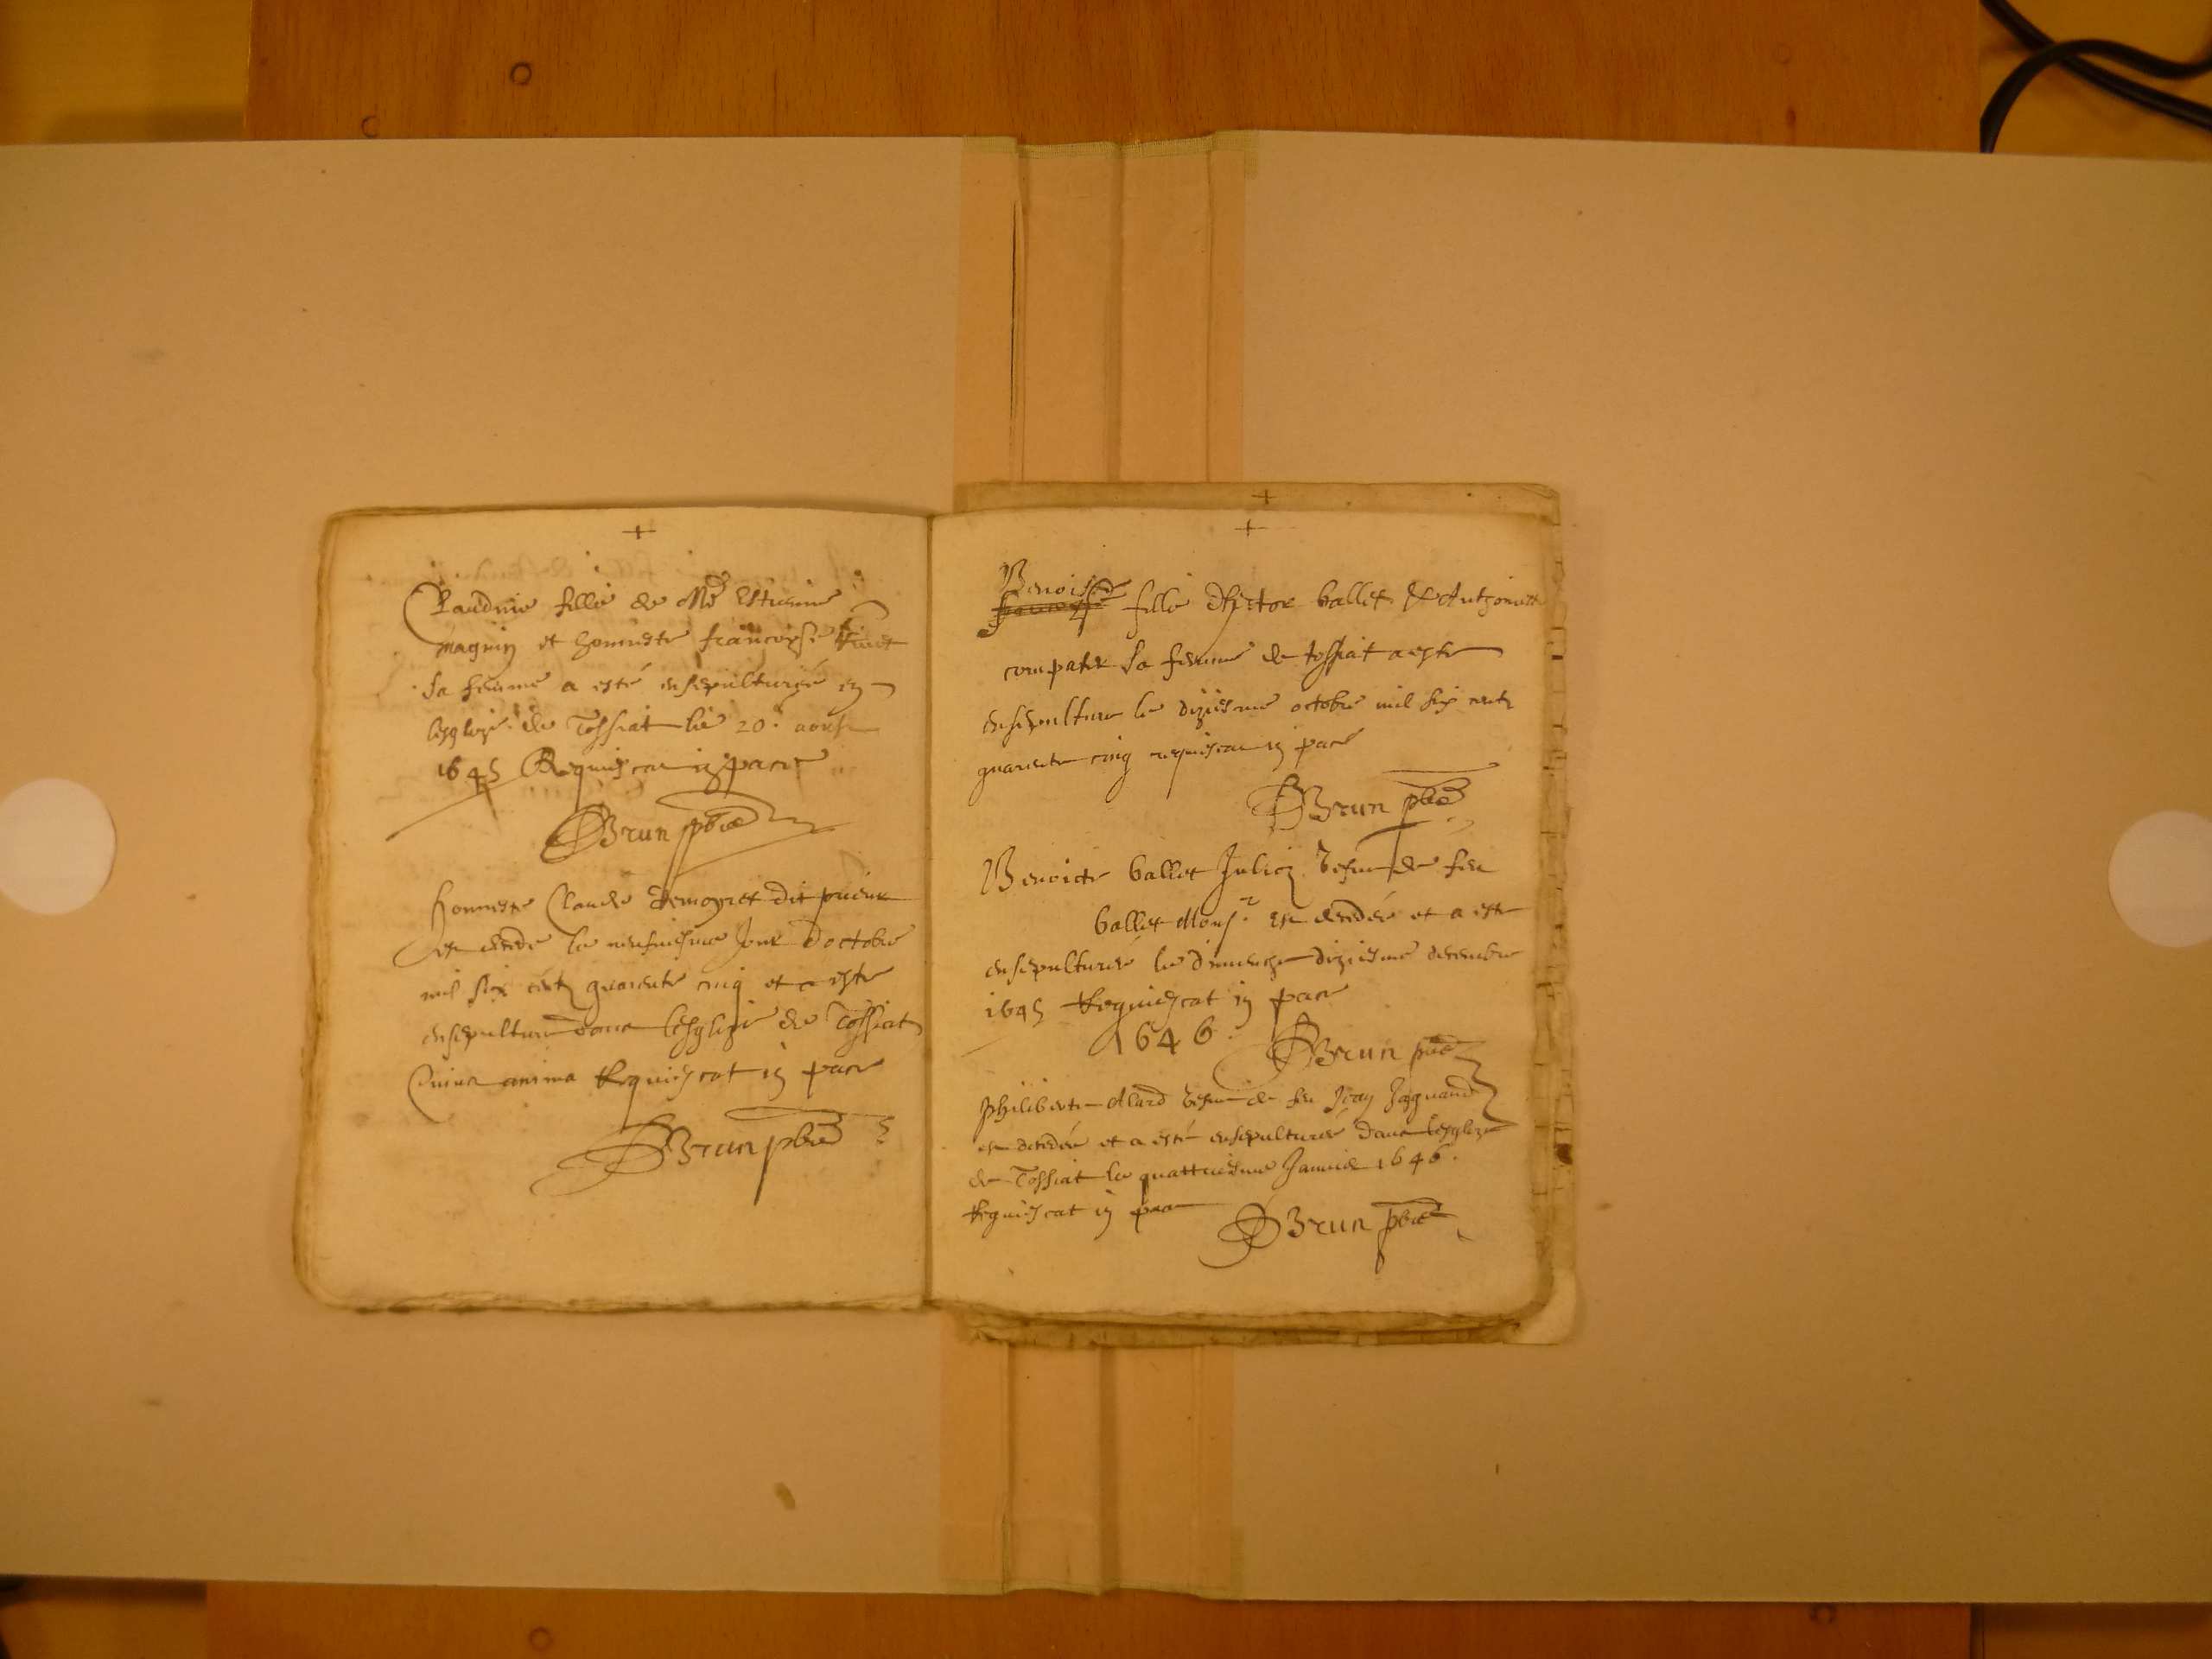 +
Claudine fille de Me Estienne
magnin et honneste francoyse
sa femme a esté ensepulturée en
lesglize de Tossiat le 20. aoust
1645 Requiescat in pace
Brun pbre
honneste Claude Demoyret dit prieur
est decedé le neufviesme Jour doctobre
mil six centz quarente cinq et a este
ensepulturé dans lesglize de Tossiat
Cuius anima Requiescat in pace
Brun pbre
+
+
Benoiste
fille dhector ballet & Anthoinette
compater sa femme de tossiat a este
ensepulture le diziesme octobre mil six centz
quarente cinq requiescat in pace
Brun pbre
Benoiste ballet Julien vefve de feu
ballet Monsr est decedée et a este
ensepulturée le dimenche diziesme decembre
1645 Requiescat in pace
1646.
Brun pbre
philiberte Alard vefve de feu Jean Jaquand
est decedée et a esté ensepulturée dans lesglize
de Tossiat le quattriesme Janvier 1646.
Requiescat in pace
Brun pbre